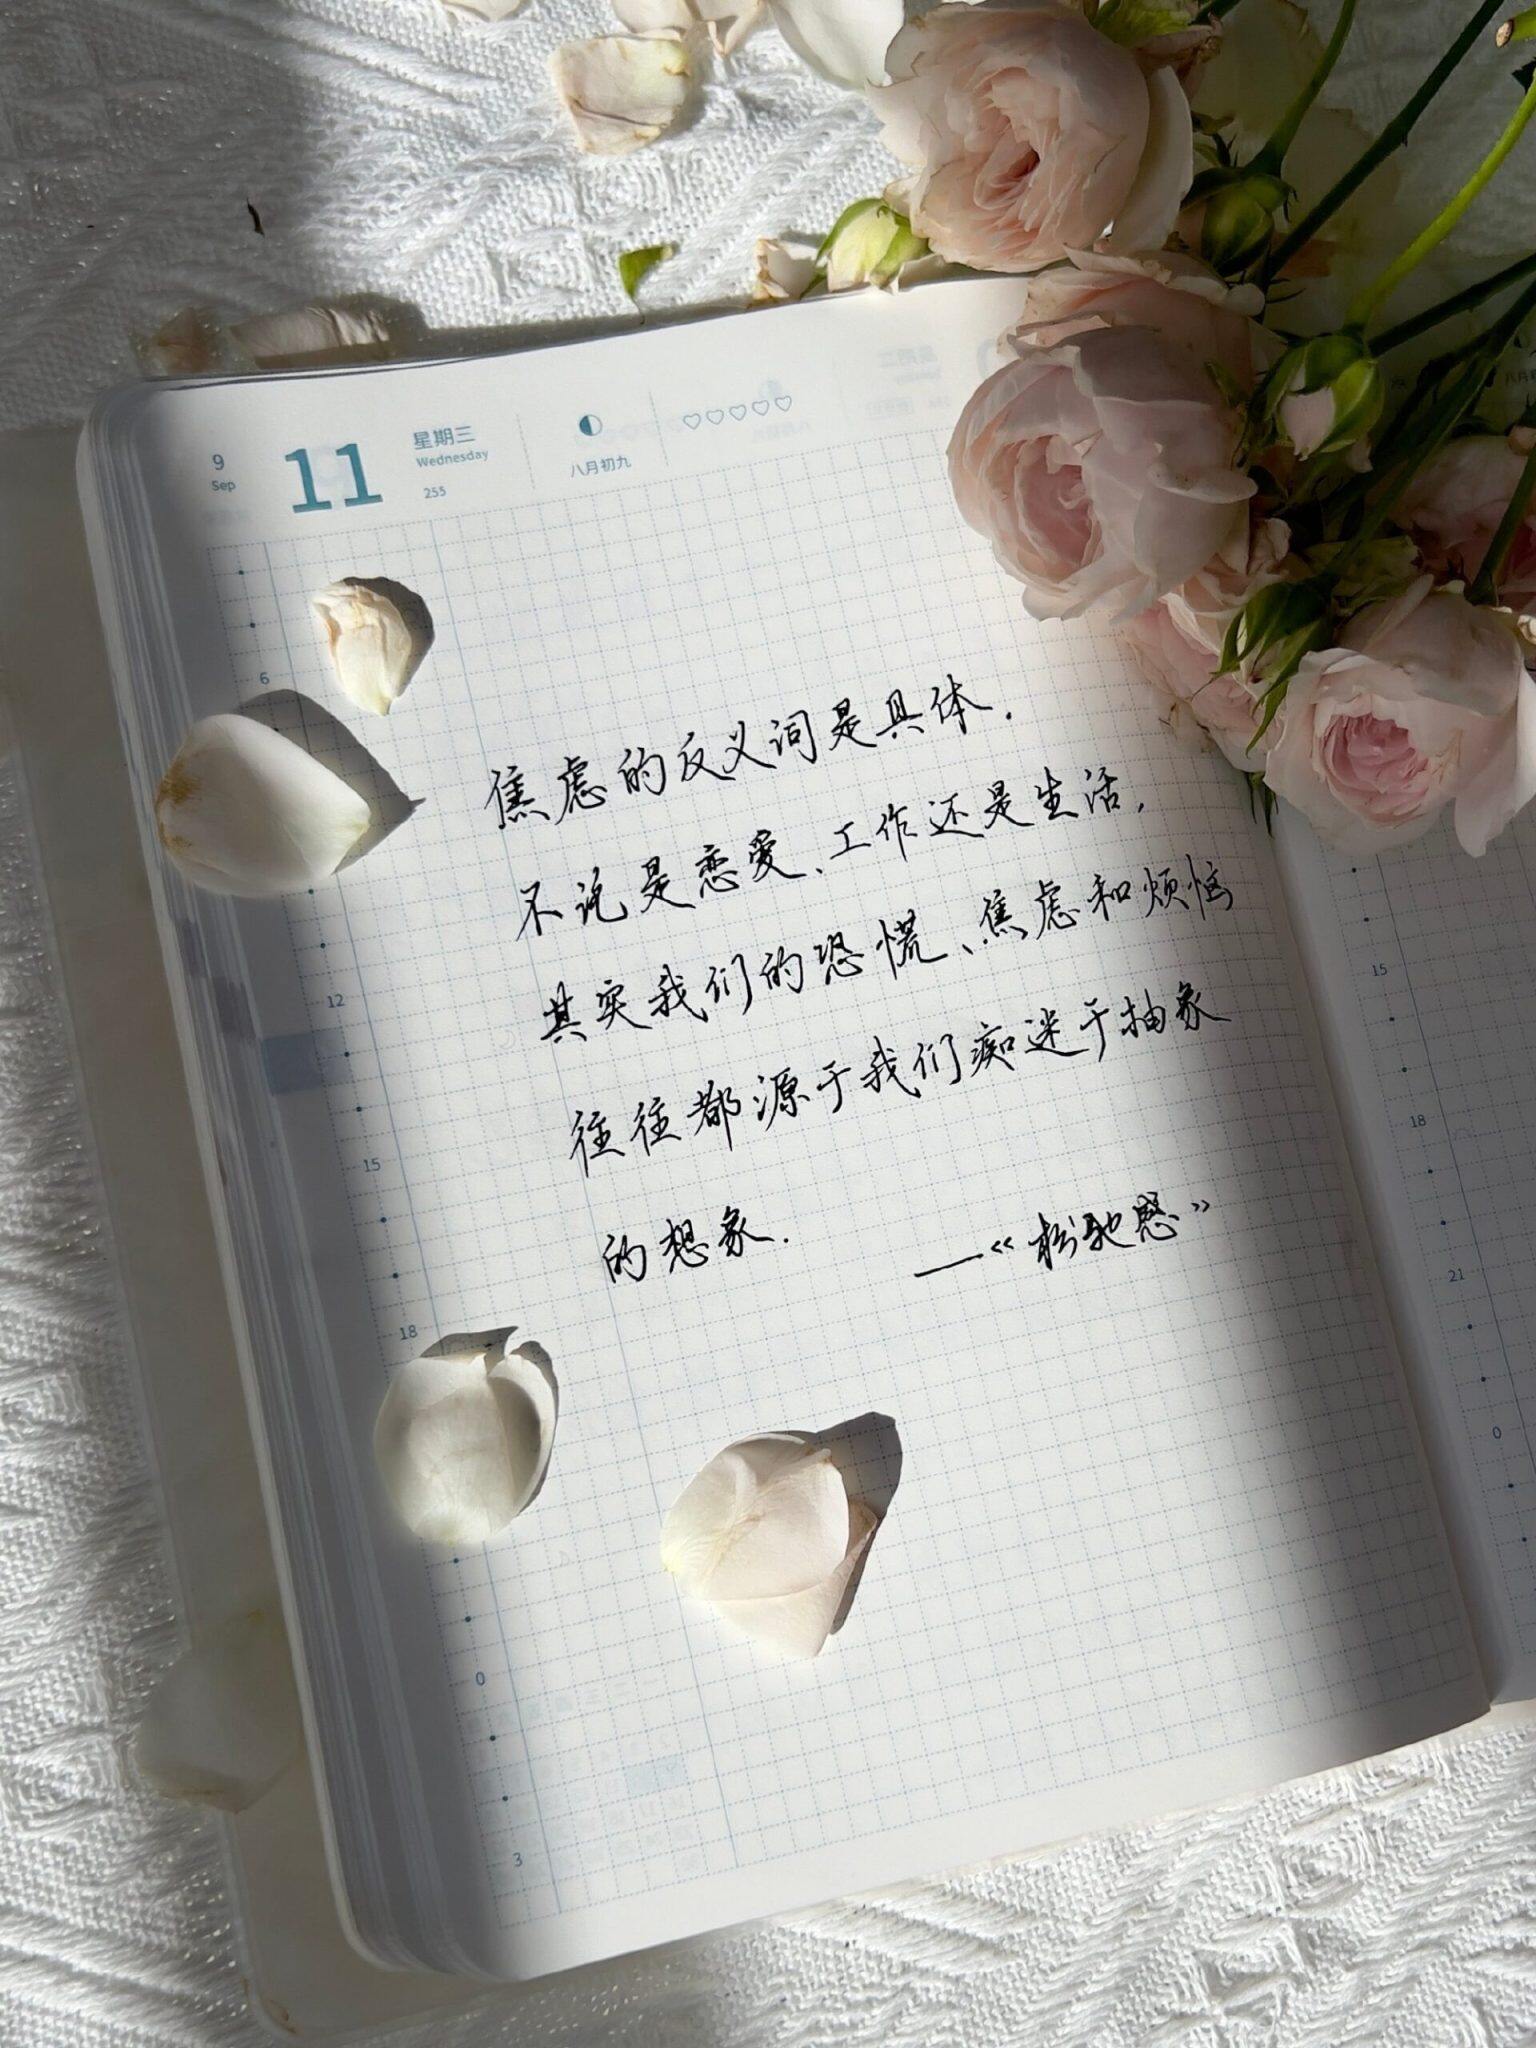 9
Sep
11
星期三
Wednesday
255
八月初九
6
12
15
18
0
3
焦虑的反义词是具体.
不说是恋爱、工作还是生活,
其实我们的恐慌、焦虑和烦恼
往往都源于我们痴迷于抽象
的想象.
—《松弛感》
15
18
21
0